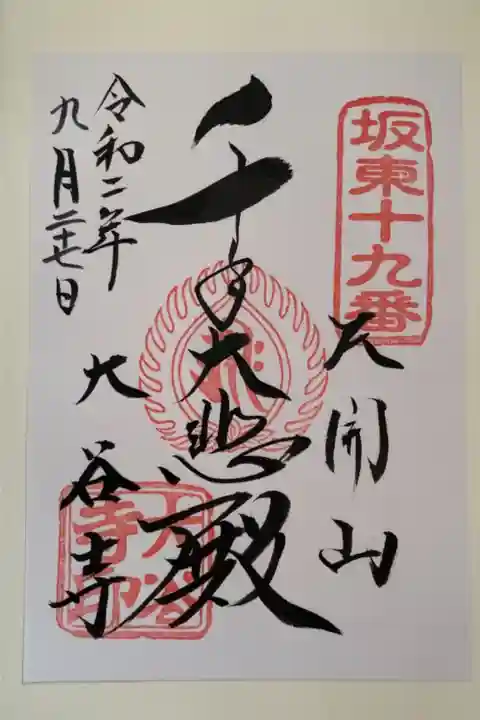 坂東十九番
天開山
千手大悲殿
大谷寺
令和二年
九月二十七日
大谷寺印